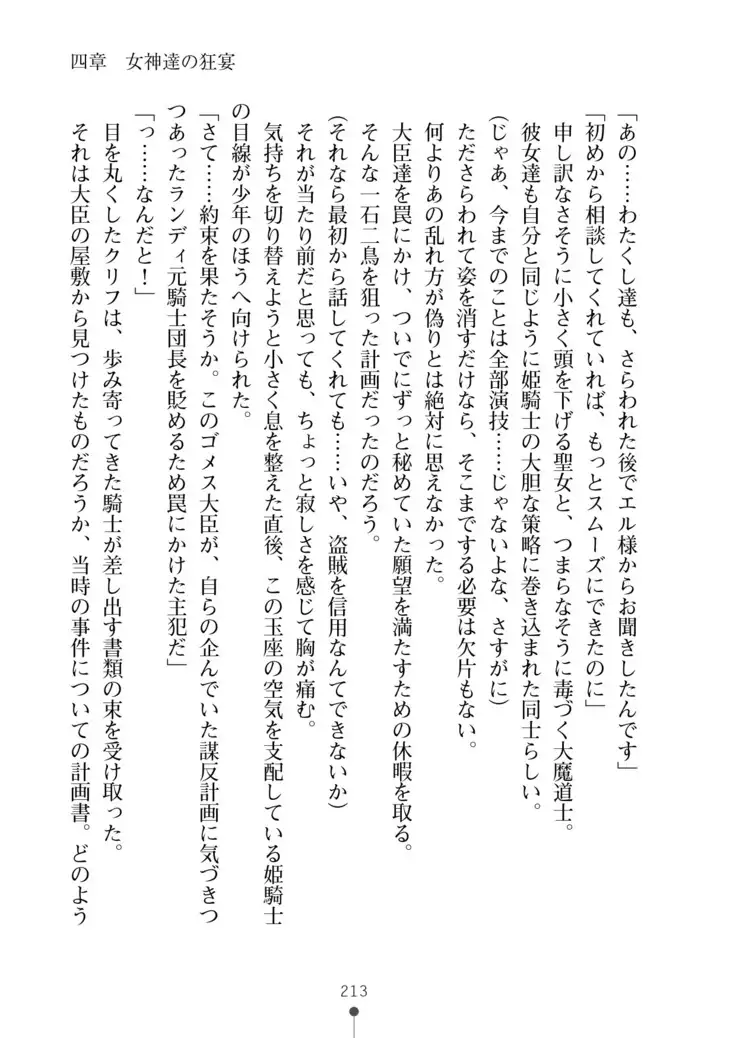 四章　女神達の狂宴
「あの……わたくし達も、さらわれた後でエル様からお聞きしたんです」
「初めから相談してくれていれば、もっとスムーズにできたのに」
申し訳なさそうに小さく頭を下げる聖女と、つまらなそうに毒づく大魔道士。
彼女達も自分と同じように姫騎士の大胆な策略に巻き込まれた同士らしい。
（じゃあ、今までのことは全部演技……じゃないよな、さすがに）
たださらわれて姿を消すだけなら、そこまでする必要は欠片もない。
何よりあの乱れ方が偽りとは絶対に思えなかった。
大臣達を罠にかけ、ついでにずっと秘めていた願望を満たすための休暇を取る。
そんな一石二鳥を狙った計画だったのだろう。
（それなら最初から話してくれても……いや、盗賊を信用なんてできないか）
それが当たり前だと思っても、ちょっと寂しさを感じて胸が痛む。
気持ちを切り替えようと小さく息を整えた直後、この玉座の空気を支配している姫騎士
の目線が少年のほうへ向けられた。
「さて……約束を果たそうか。このゴメス大臣が、自らの企んでいた謀反計画に気づきつ
つあったランディ元騎士団長を貶めるため罠にかけた主犯だ」
「っ……なんだと！」
目を丸くしたクリフは、歩み寄ってきた騎士が差し出す書類の束を受け取った。
それは大臣の屋敷から見つけたものだろうか、当時の事件についての計画書。どのよう
213